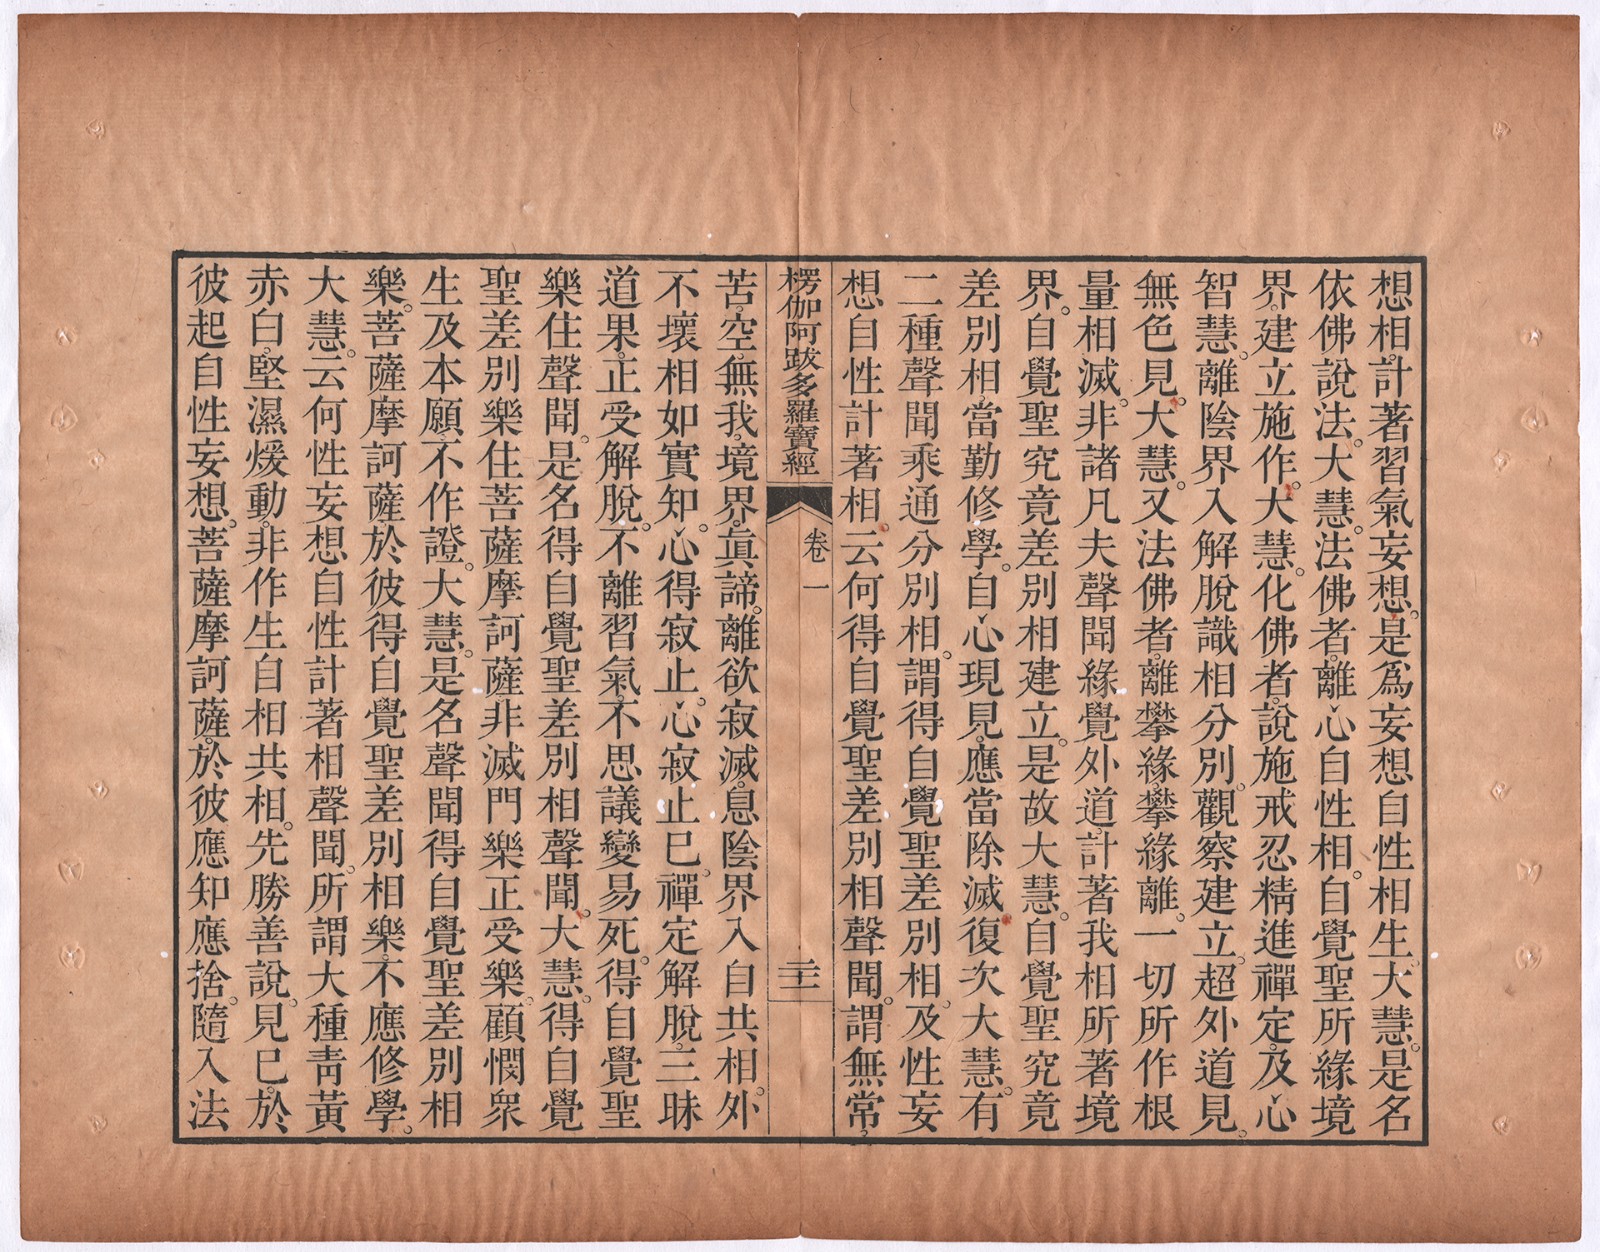 想相計著習氣妄想。是爲妄想自性相生。大慧。是名
依佛說法。大慧。法佛者。離心自性相。自覺聖所緣境
界。建立施作。大慧。化佛者。說施戒忍精進禪定。及心
智慧。離陰界入解脫識相分別。觀察建立。超外道見。
無色見。大慧。又法佛者。離攀緣。攀緣離。一切所作根
量相滅。非諸凡夫聲聞緣覺外道。計著我相所著境
界。自覺聖究竟差別相建立。是故大慧。自覺聖究竟
差別相。當勤修學。自心現見。應當除滅。復次大慧。有
二種聲聞乘通分別相。謂得自覺聖差別相。及性妄
想自性計著相。云何得自覺聖差別相聲聞。謂無常。
楞伽阿跋多羅寶經
卷一
二十二
苦。空。無我。境界。眞諦。離欲寂滅。息陰界入自共相。外
不壞相如實知。心得寂止。心寂止巳。禪定解脫。三昧
道果。正受解脫。不離習氣。不思議變易死。得自覺聖
樂住聲聞。是名得自覺聖差別相聲聞。大慧。得自覺
聖差別樂住菩薩摩訶薩。非滅門樂正受樂。顧憫衆
生及本願不作證。大慧。是名聲聞得自覺聖差別相
樂。菩薩摩訶薩於彼得自覺聖差別相樂。不應修學。
大慧。云何性妄想自性計著相聲聞。所謂大種青黃
赤白。堅濕煖動。非作生自相共相。先勝善說。見巳。於
彼起自性妄想。菩薩摩訶薩。於彼應知應捨。隨入法